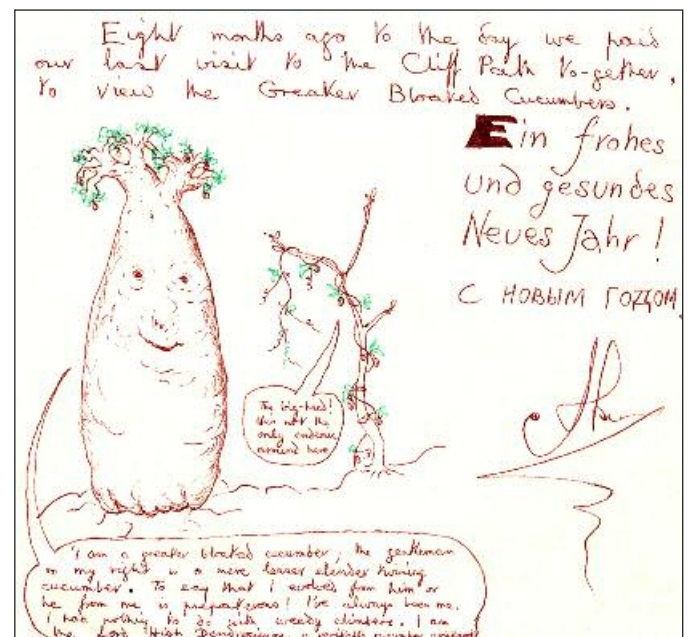 Eight months ago to the day we paid
our last visit to the Cliff Path to-gether,
to view the Greater Bloated Cucumbers.
Ein frohes
und gesundes
Neues Jahr!
С НОВЫМ ГОДОМ
The big-head!
He's not the
only endemic
around here
I am a greater bloated cucumber, the gentleman
on my right is a mere lesser slender twining
cucumber. To say that I evolved from him or
he from me is preposterous! I've always been me.
I had nothing to do with weedy climbers. I am
the Lord High